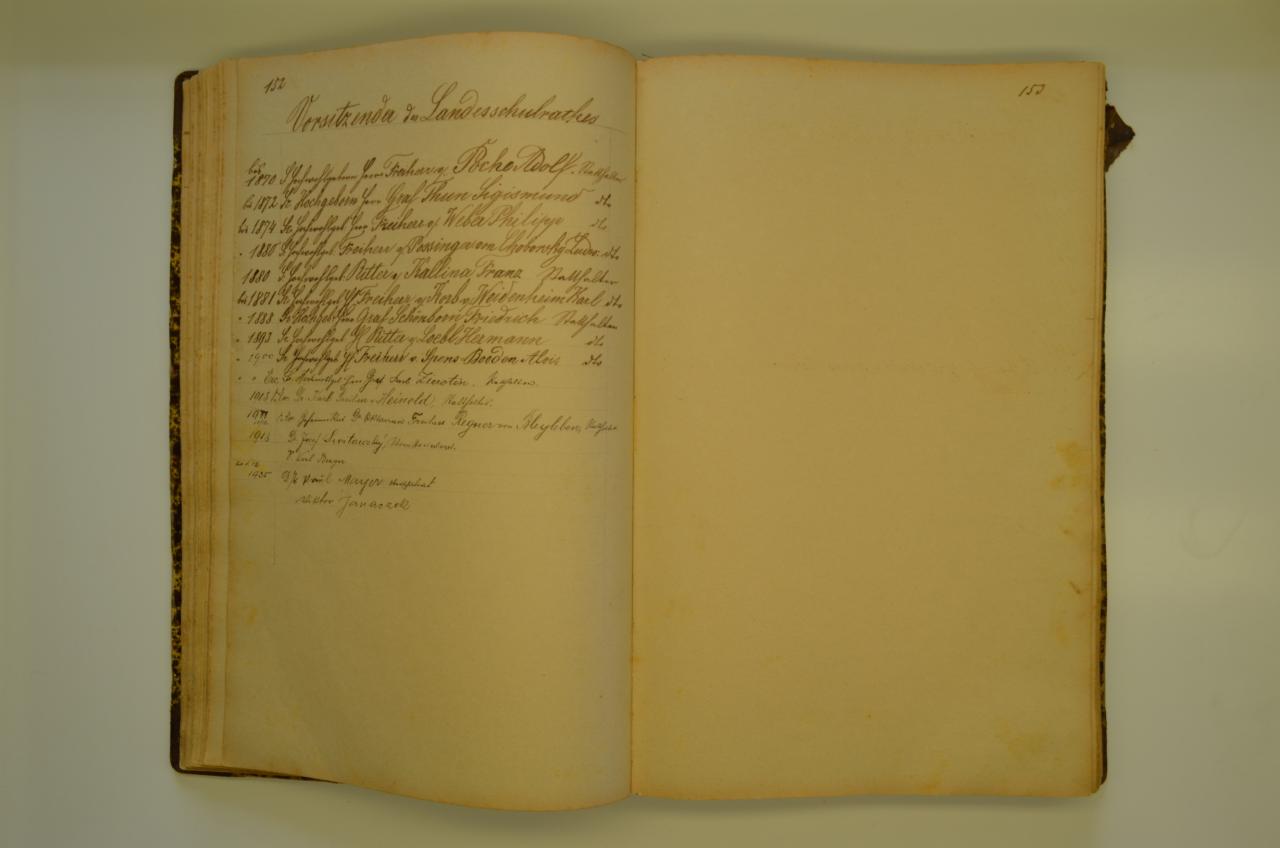 152
Vorsitzende des Landesschulrathes
bis 1870 S. Hochwohlgeboren Herr Freiherr v. Poche Adolf. Statthalter
bis 1872 Se Hochgeborn Herr Graf Thun Sigismund dto
bis 1874 Se Hochwohlgeb. Herr Freiherr v. Weber Philipp dto
" 1880 S. Hochwohlgeb. Freiherr v. Possinger von Choborsky Ludw. dto
1880 S. Hochwohlgeb. Ritter v. Kallina Franz Statthalter
bis 1881 Se Hochwohlgeb. H. Freiherr v. Korb v. Weidenheim Karl dto
" 1888 Se Hochgeb. Herr Graf Schönborn Friedrich Statthalter
" 1893 Se Hochwohlgeb. H. Ritter v. Loebl Hermann dto
" 1900 Se Hochwohlgeb. H. Freiherr v. Spens-Booden Alois dto
" " Exc. Herr Graf Karl Zierotin. Statthalter.
1915 Dr. Karl Freiherr v. Heinold, Statthalter.
Dr. Oktavian Freiherr Regner von Bleyleben, Statthalter
1918 Dr. Josef
Karl Berger
1935 Dr Paul Mayer
Viktor Janaczek
153